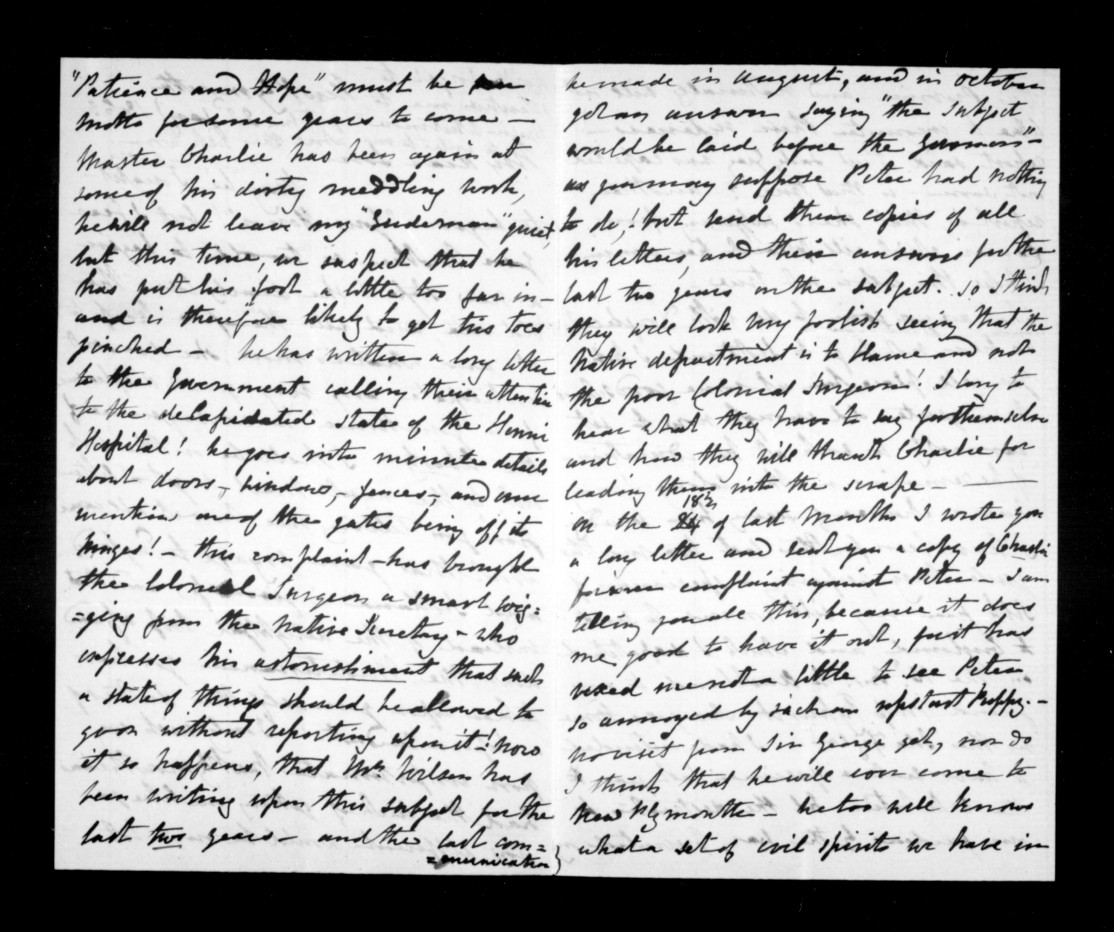 "Patience and Hope" must be
motto for some years to come —
Master Charlie has been again at
some of his dirty meddling work,
he will not leave my "Guderman" quiet,
but this time, we suspect that he
has put his foot a little too far in —
and is therefore likely to get his toes
pinched — he has written a long letter
to the Government calling their attention
to the delapidated state of the Henui
Hospital! he goes into minute details
about doors, — windows, — fences, — and even
mention one of the gates being off its
hinges! — this complaint — has brought
the Colonial Surgeon a smart wig=
=ging from the Native Secretary — who
expresses his astonishment that such
a state of things should be allowed to
go on without reporting upon it —! now
it so happens, that Mr. Wilson has
been writing upon this subject for the
last two years — and the last com=
=munication
he made in August, and in October
got an answer saying "the subject
would be laid before the Governor" —
as you may suppose Peter had nothing
to do,! but send them copies of all
his letters, and their answers for the
last two years on the subject. so I think
they will look very foolish seeing that the
Native department is to blame and not
the poor Colonial Surgeon! I long to
hear what they have to say for themselves
and how they will thank Charlie for
leading them into the scrape —
on the 18th of last month I wrote you
a long letter and sent you a copy of Charlie
former complaint against Peter — I am
telling you all this, because it does
me good to have it out, for it has
vexed me not a little to see Peter
so annoyed by such an upstart Puppy. —
no visit from Sir George yet, nor do
I think that he will ever come to
New Plymouth — he too well knows
what a set of evil spirits we have in